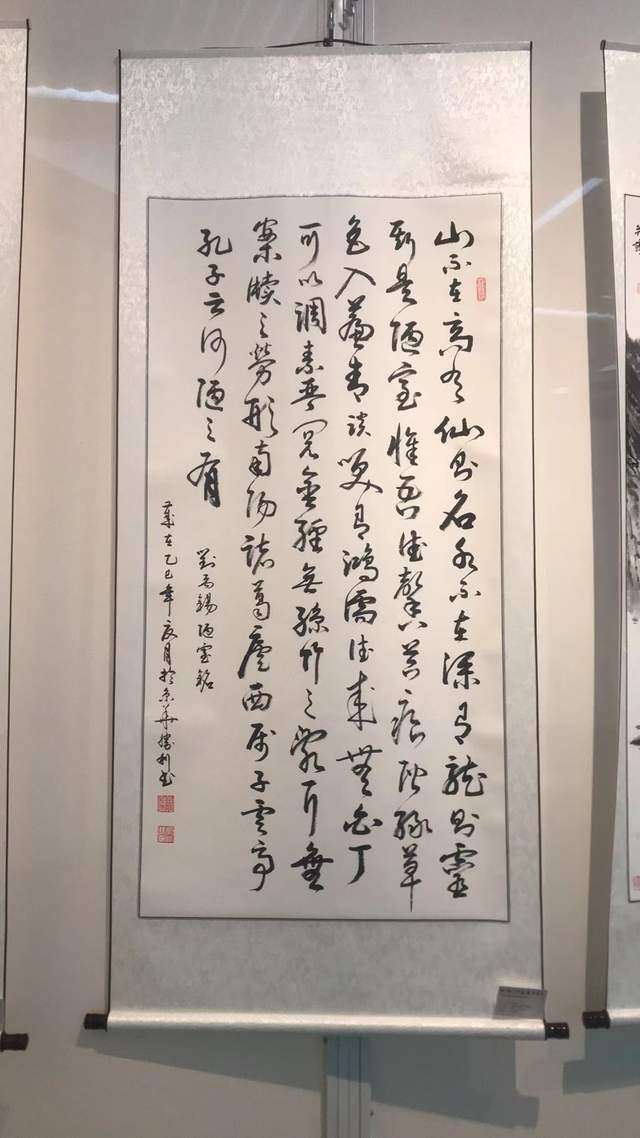 山不在高有仙則名水不在深有龍則靈
斯是陋室惟吾德馨苔痕階綠草
色入簾青談笑有鴻儒往來無白丁
可以調素琴閱金經無絲竹之亂耳無
案牘之勞形南陽諸葛廬西蜀子雲亭
孔子云何陋之有
劉禹錫陋室銘
歲在乙巳年夏月於京華勝利書